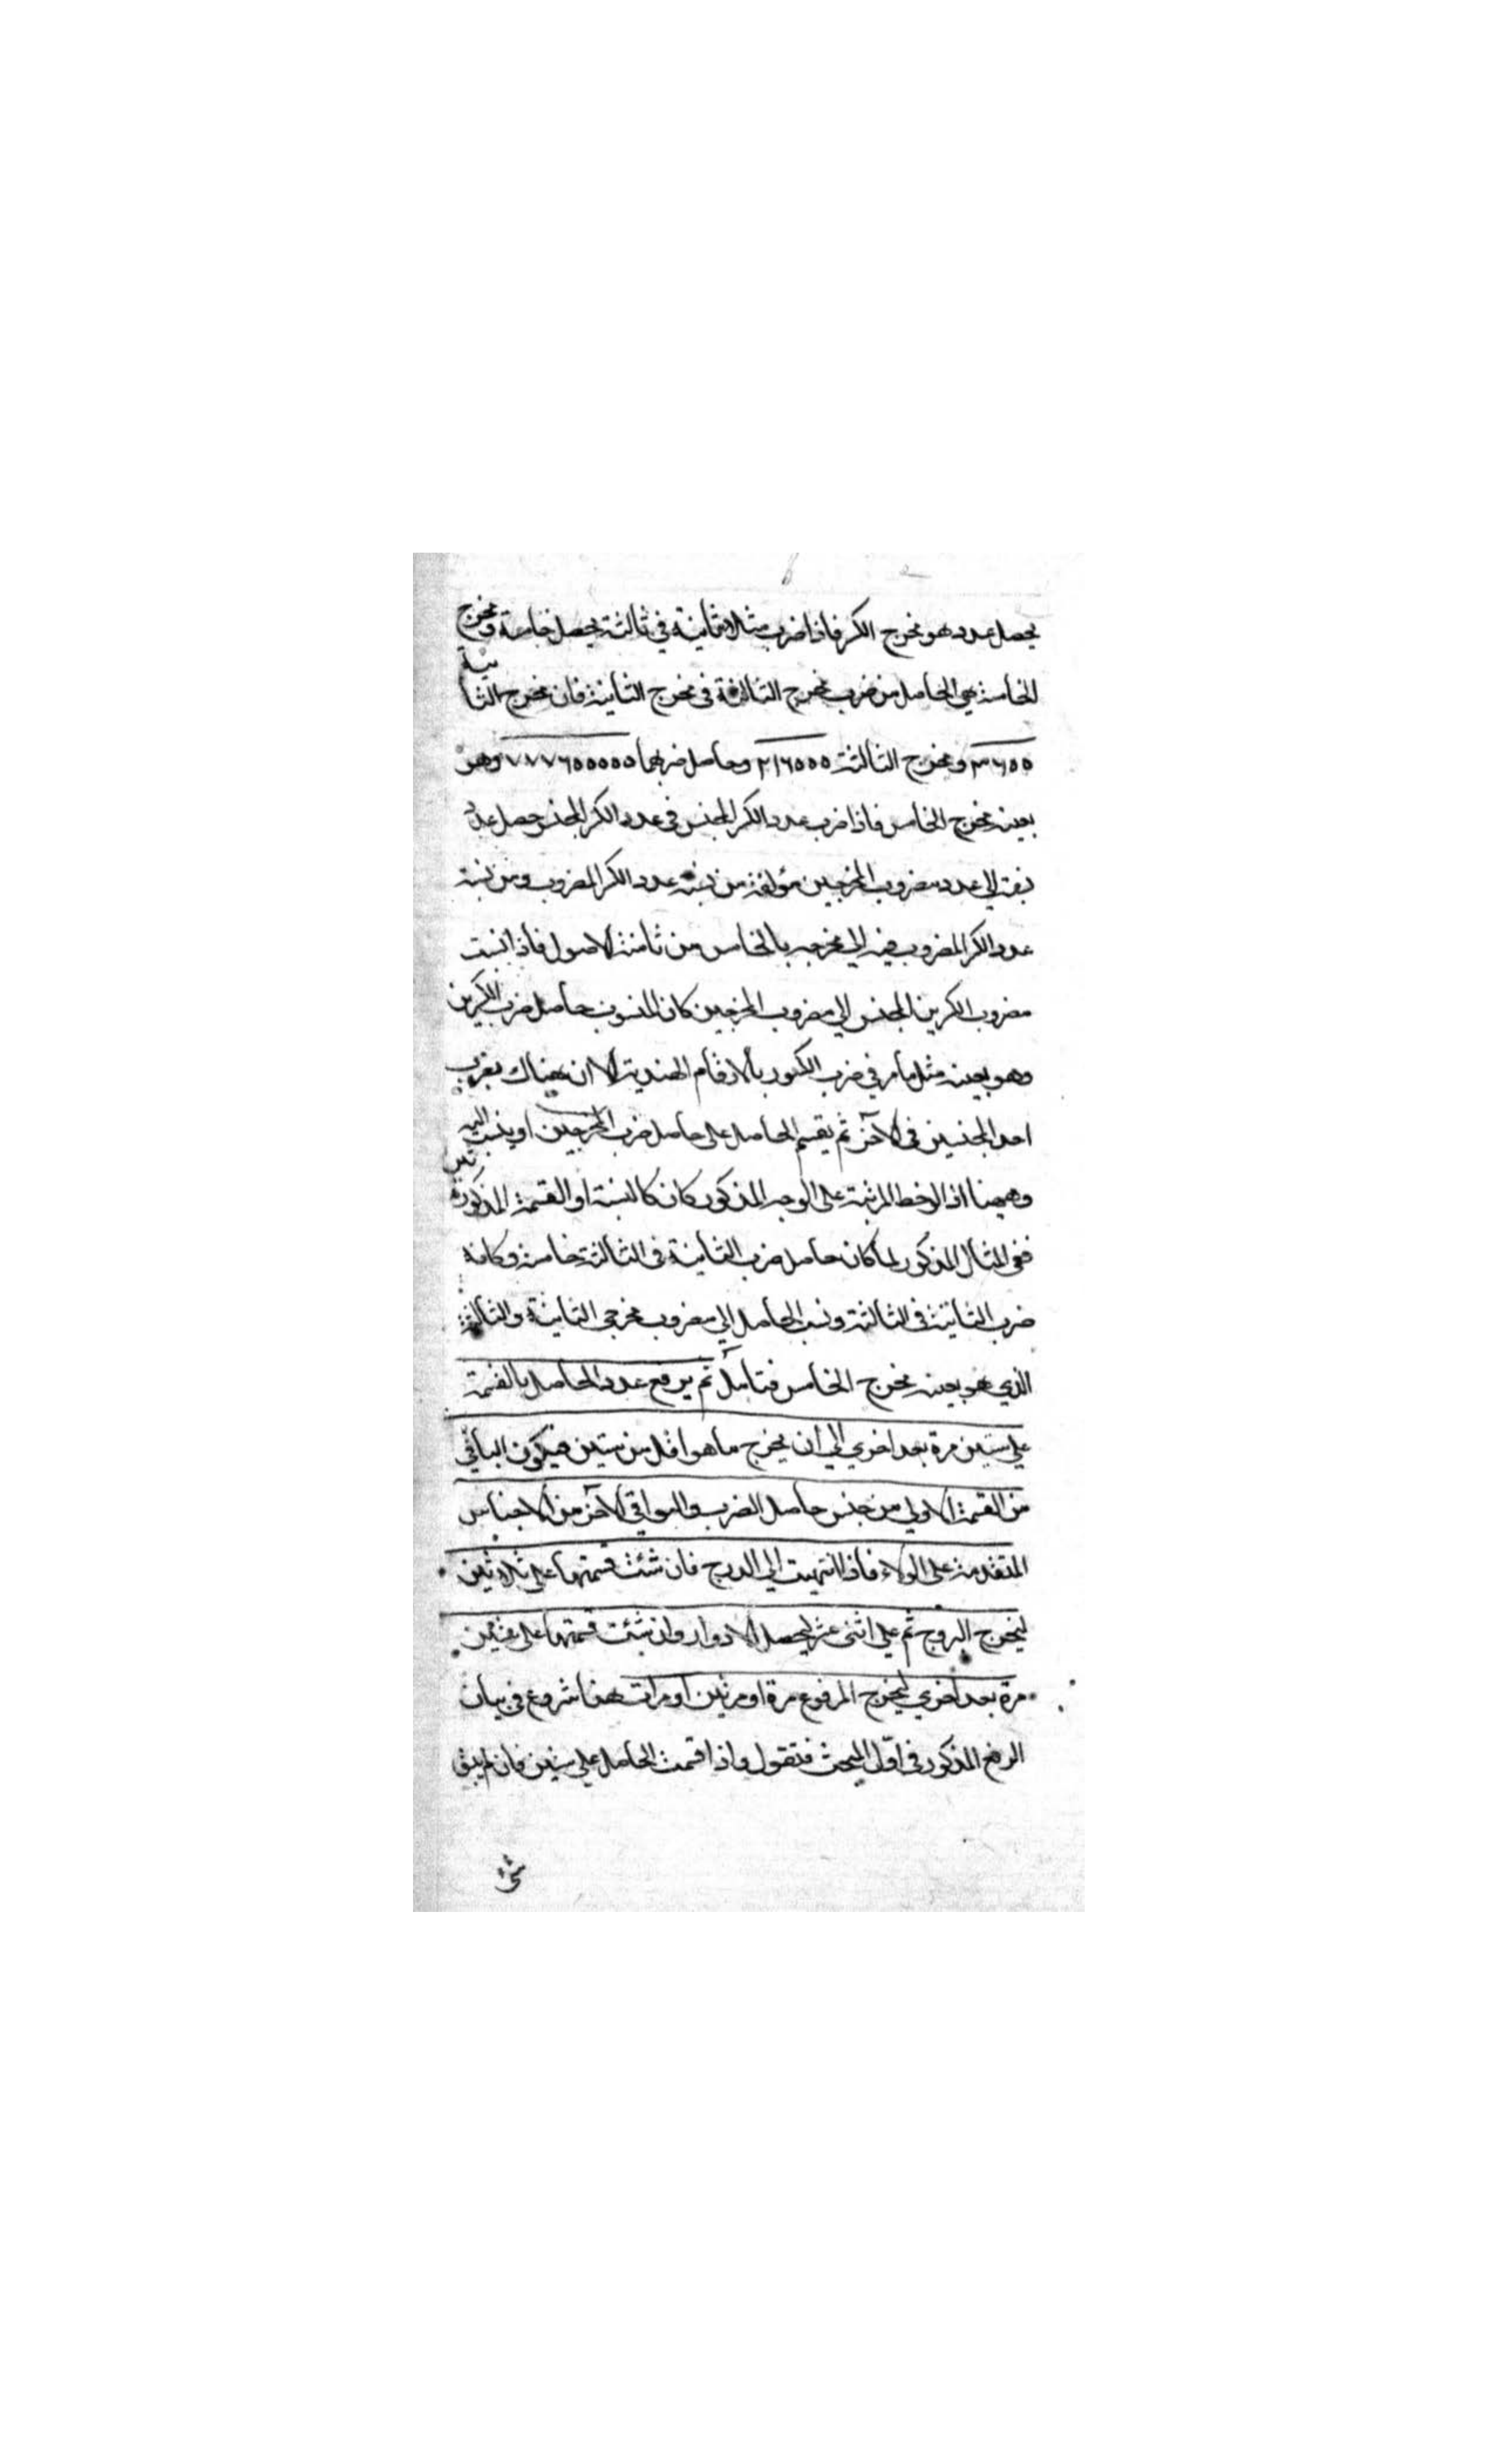 يحصل عدد هو مخرج الكر فاذا ضرب مثلا ثانية في ثالثة يحصل خامسة ومخرج
الخامسة هي الحاصل من ضرب مخرج الثالثة في مخرج الثانية فان مخرج الثانية
٣٦٥٥ ومخرج الثالثة ٢١٦٥٥٥ وحاصل ضربهما ٧٧٧٦٥٥٥٥٥ وهو
بعينه مخرج الخامس فاذا ضرب عدد الكر المجنس في عدد الكر المجنس حصل عدد
نسبته الى عدد مضروب المخرجين مؤلفة من نسبة عدد الكر المضروب ومن نسبة
عدد الكر المضروب فيه الى مخرجه بالخامس من ثامنة الاصول فاذا نسبت
مضروب الكرين المجنس الى مضروب المخرجين كان المنسوب حاصل ضرب الكرين
وهو بعينه مثل ما مر في ضرب الكسور بالارقام الهندية الا ان هناك يضرب
احد المجنسين في الآخر ثم يقسم الحاصل على حاصل ضرب المخرجين او ينسب اليه
وههنا اذ الوخط المرتبة على الوجه المذكور كان كالنسبة او القسمة المذكورتين
ففي المثال المذكور لما كان حاصل ضرب الثانية في الثالثة خامسة وكانه
ضرب الثانية في الثالثة ونسب الحاصل الى مضروب مخرجي الثانية والثالثة
الذي هو بعينه مخرج الخامس فتامل ثم يرفع عدد الحاصل بالقسمة
على ستين مرة بعد اخري الى ان يخرج ما هو اقل من ستين فيكون الباقي
من القسمة الاولى من جنس حاصل الضرب والبواقي الآخر من الاجناس
المتقدمة على الولاء فاذا انتهيت الى الدرج فان شئت قسمتها على ثلاثين
ليخرج البروج ثم على اثنى عشر ليحصل الادوار وان شئت قسمتها على ستين
مرة بعد اخري ليخرج المرفوع مرة او مرتين او مرات هذا شروع في بيان
الرفع المذكور في اول المبحث فتقول واذا قسمت الحاصل على ستين فان لم يبق
شئ